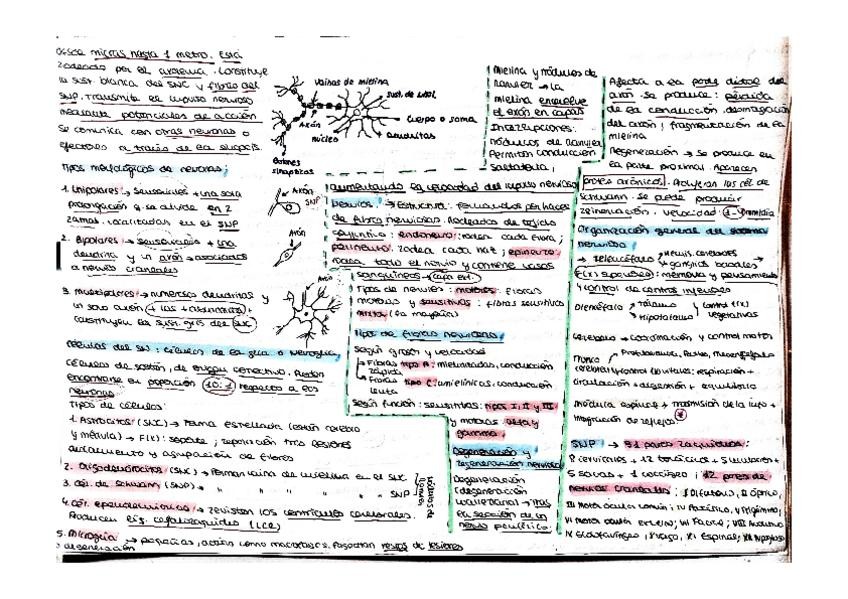 desde micras hasta 1 metro. Está
rodeado por el axolema. Constituye
la sust. blanca del SNC y fibras del
SNP. Transmite el impulso nervioso
mediante potenciales de acción
Se comunica con otras neuronas o
efectores a través de la sinapsis.
Tipos morfológicos de neuronas:
1. Unipolares → sensoriales + una sola
prolongación q se divide en 2
ramas. Localizadas en el SNP
2. Bipolares → sensoriales + una
dendrita y un axón → asociados
a nervios craneales
3. Multipolares → numerosas dendritas y
un solo axón (+ las + abundantes) +
constituyen la sust. gris del SNC
Células del SN: células de la glia o Neuroglia
células de sostén, de origen conectivo. Pueden
encontrarse en proporción 10:1 respecto a las
neuronas
Tipos de células:
1. Astrocitos (SNC) → forma estrellada (están cerebro
y médula) → F(x): soporte; reparación tras lesiones
aislamiento y agrupación de fibras
2. Oligodendrocitos (SNC) → Forman vaina de mielina en el SNC
3. Cél. de Schwann (SNP) → " " " " " SNP
4. Cél. ependimarias → revisten los ventrículos cerebrales.
Producen líq. cefalorraquídeo (LCR)
5. Microglia → pequeñas, actúan como macrófagos. Fagocitan restos de lesiones
o degeneración
Vainas de mielina
Axón
Núcleo
Cuerpo o soma
dendritas
Botones
sinápticos
Axón
SNP
Axón
Axón
Mielina y nódulos de
Ranvier → La
mielina envuelve
el axón en capas
Interrupciones:
nódulos de Ranvier
Permiten conducción
saltatoria,
aumentando la velocidad del impulso nervioso
Nervios: → Estructura: formados por haces
de fibras nerviosas. Rodeados de tejido
conjuntivo: endoneuro: rodea cada fibra;
perineuro: rodea cada haz; epineuro:
rodea todo el nervio y contiene vasos
sanguíneos → capa ext.
Tipos de nervios: motores: fibras
motoras y sensitivos: fibras sensitivas
mixto (la mayoría)
Tipos de fibras nerviosas:
Según grosor y velocidad
Fibras tipo A: mielinizadas, conducción
rápida
Fibras tipo C: amielínicas, conducción
lenta
Según función: sensitivas: tipos I, II y III
y motoras: alfa y
gamma
Degeneración y
regeneración nerviosa
Degeneración
(degeneración
walleriana) → tras
la sección de un
nervio periférico.
Afecta a la parte distal del
axón. Se produce: pérdida
de la conducción, desintegración
del axón; fragmentación de la
mielina
Regeneración → Se produce en
la parte proximal. Aparecen
brotes axónicos.
Schwann. Se puede producir
reinervación. Velocidad: 1-4mm/día
Organización general del sistema
nervioso:
→ Telencéfalo: Hemis. cerebrales
+ ganglios basales →
F(x) superiores: memoria y pensamiento
y control de centros inferiores
Diencéfalo → Tálamo
Hipotálamo
control f(x)
vegetativas
Cerebelo → coordinación y control motor
Tronco
cerebral → Protuberancia, Bulbo, Mesencéfalo
→ control f(x) vitales: respiración +
circulación + digestión + equilibrio
Médula espinal → transmisión de la info +
integración de reflejos *
SNP → 31 pares raquídeos:
8 cervicales + 12 torácicos + 5 lumbares +
5 sacros + 1 coccígeo; 12 pares de
nervios craneales: I Olfatorio, II Óptico,
III Motor ocular común, IV Patético, V Trigémino,
VI Motor ocular externo, VII Facial, VIII Auditivo
IX Glosofaríngeo, X Vago, XI Espinal, XII Hipogloso